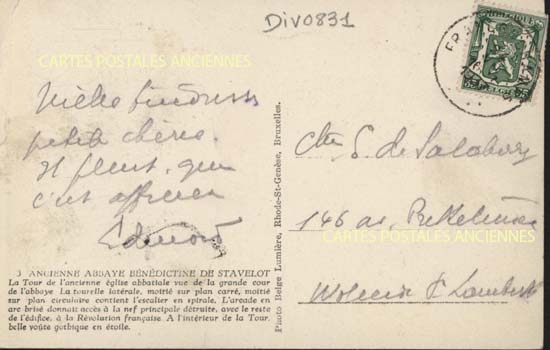 Div0831
BELGIQUE
CARTES POSTALES ANCIENNES
Mille tendresses
petite chérie.
Il pleut, que
c'est affreux
Edmond
3 ANCIENNE ABBAYE BÉNÉDICTINE DE STAVELOT
La Tour de l'ancienne église abbatiale vue de la grande cour
de l'abbaye La tourelle latérale, moitié sur plan carré, moitié
sur plan circulaire contient l'escalier en spirale. L'arcade en
arc brisé donnait accès à la nef principale détruite, avec le reste
de l'édifice, à la Révolution française. A l'intérieur de la Tour,
belle voûte gothique en étoile.
Photo Belge Lumière, Rhode-St-Genèse, Bruxelles.
Cte S. de Salabery
146 av.
CARTES POSTALES ANCIENNES
Woluwe St Lambert